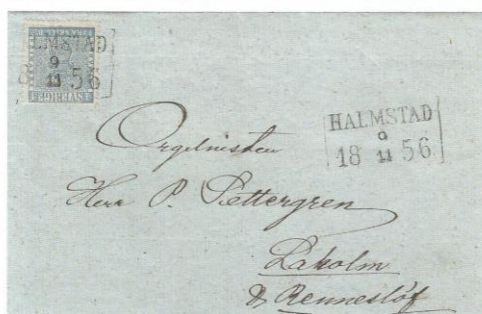 HALMSTAD
9
18 11 56
SVERIGE
HALMSTAD
9
18 11 56
Orgelnisten
Herr P. Settergren
Laholm
& Renneslöf